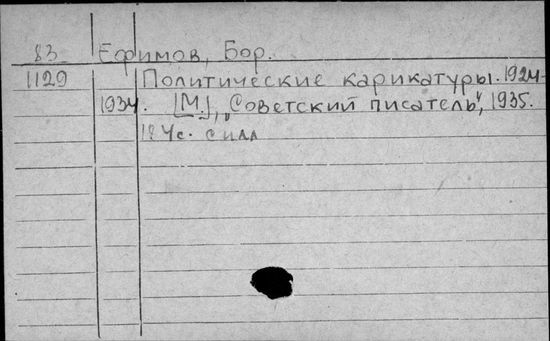 83 Ефимов, Бор.
1129 Политические карикатуры. 1924-
1934. [М.], „Советский писатель", 1935.
184с. с илл